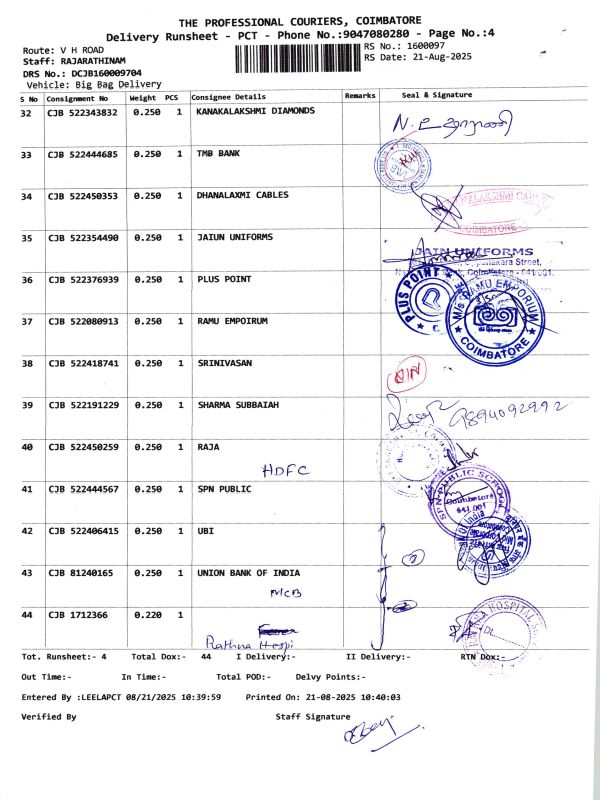 THE PROFESSIONAL COURIERS, COIMBATORE
Delivery Runsheet - PCT - Phone No.:9047080280 - Page No.:4
Route: V H ROAD
RS No.: 1600097
Staff: RAJARATHINAM
RS Date: 21-Aug-2025
DRS No.: DCJB160009704
Vehicle: Big Bag Delivery
S No Consignment No Weight PCS Consignee Details Remarks Seal & Signature
32 CJB 522343832 0.250 1 KANAKALAKSHMI DIAMONDS
33 CJB 522444685 0.250 1 TMB BANK
34 CJB 522450353 0.250 1 DHANALAXMI CABLES
COIMBATORE
35 CJB 522354490 0.250 1 JAIUN UNIFORMS
JAIN UNIFORMS
36 CJB 522376939 0.250 1 PLUS POINT
PLUS POINT
37 CJB 522080913 0.250 1 RAMU EMPOIRUM
M/s RAMU EMPORIUM
COIMBATORE
38 CJB 522418741 0.250 1 SRINIVASAN
39 CJB 522191229 0.250 1 SHARMA SUBBAIAH
9894092992
40 CJB 522450259 0.250 1 RAJA
HDFC
41 CJB 522444567 0.250 1 SPN PUBLIC
SPN PUBLIC SCHOOL
Coimbatore
641 001
42 CJB 522406415 0.250 1 UBI
43 CJB 81240165 0.250 1 UNION BANK OF INDIA
MCB
44 CJB 1712366 0.220 1
Rathna Hospi
Tot. Runsheet:- 4 Total Dox:- 44 I Delivery:- II Delivery:- RTN Dox:-
Out Time:- In Time:- Total POD:- Delvy Points:-
Entered By :LEELAPCT 08/21/2025 10:39:59 Printed On: 21-08-2025 10:40:03
Verified By Staff Signature